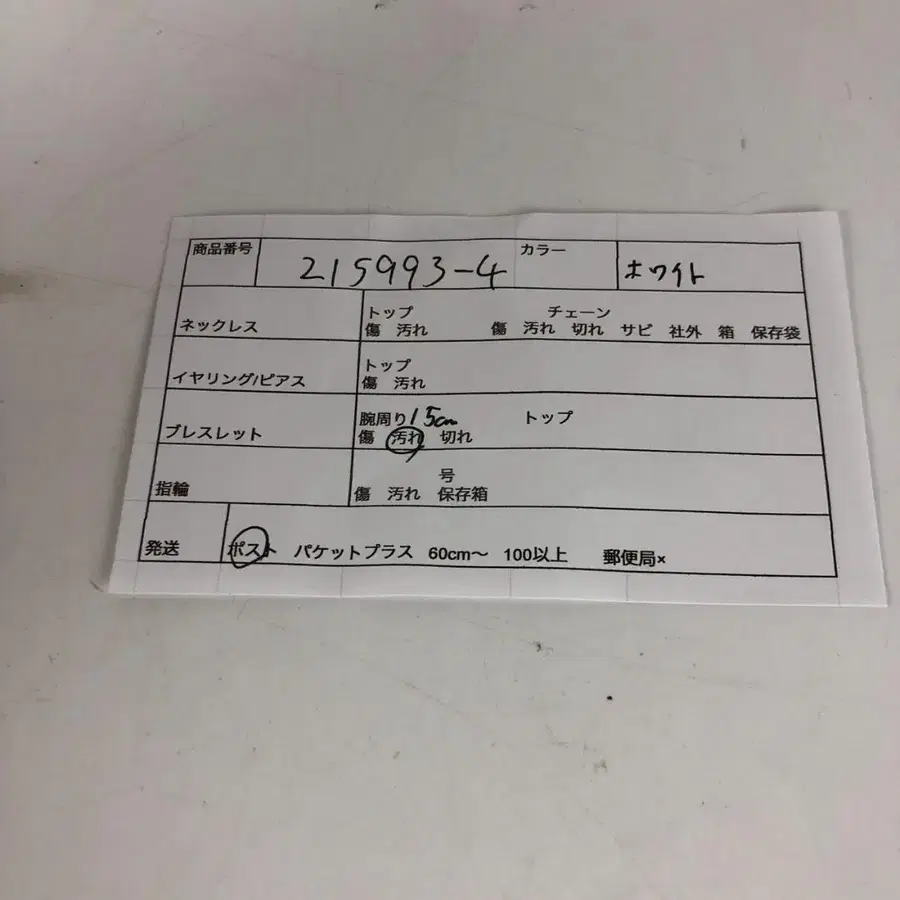 商品番号 215993-4 カラー ホワイト
トップ チェーン
ネックレス 傷 汚れ 傷 汚れ 切れ サビ 社外 箱 保存袋
トップ
イヤリング/ピアス 傷 汚れ
腕周り 15cm トップ
ブレスレット 傷 汚れ 切れ
号
指輪 傷 汚れ 保存箱
発送 ポスト パケットプラス 60cm〜 100以上 郵便局×